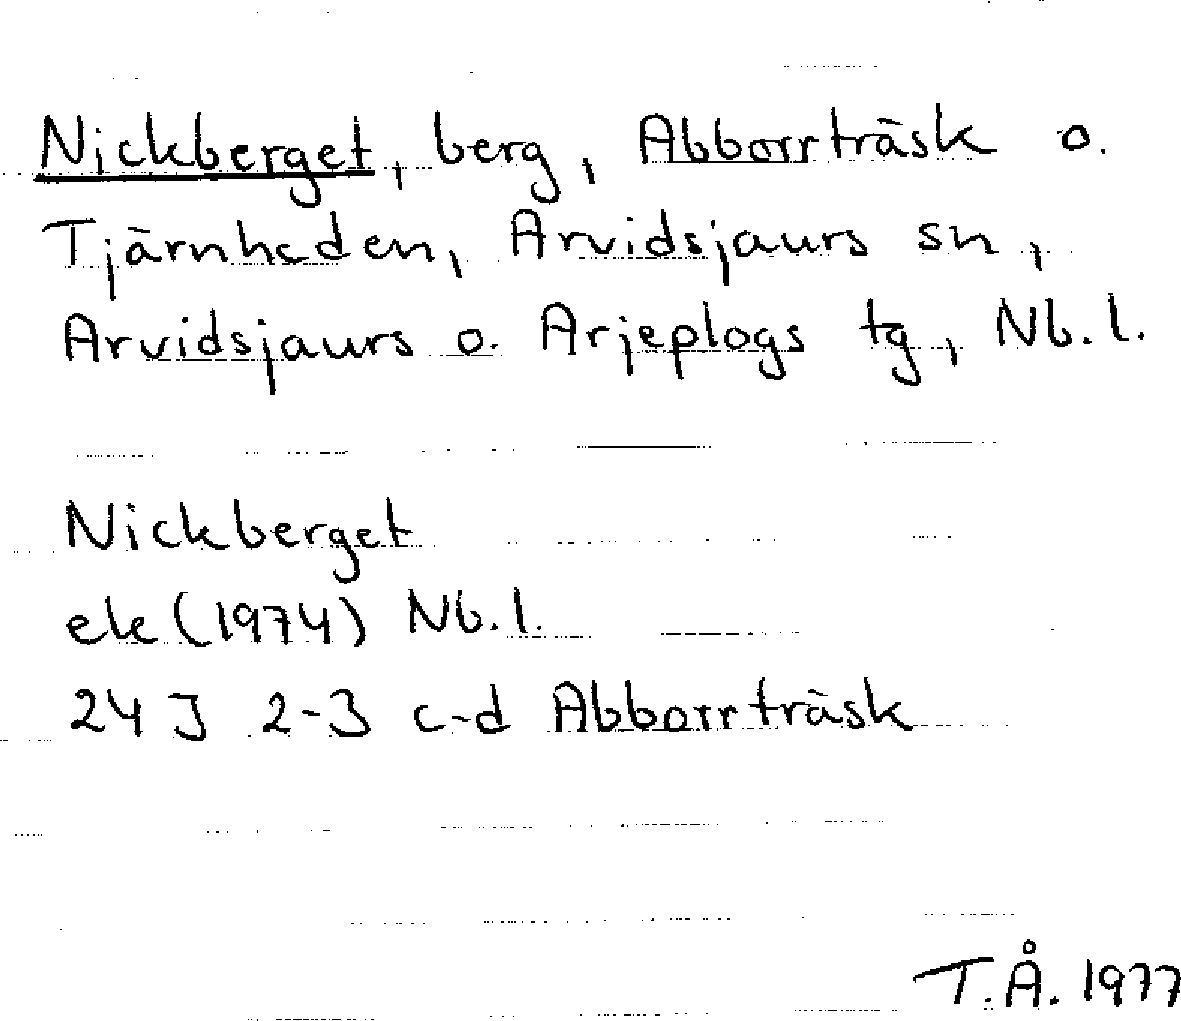 Nickberget, berg, Abborrträsk o.
Tjärnheden, Arvidsjaurs sn,
Arvidsjaurs o. Arjeplogs tg, Nb. l.
Nickberget
ek (1974) Nb. l.
24 J 2-3 c-d Abborrträsk
T.Å. 1977